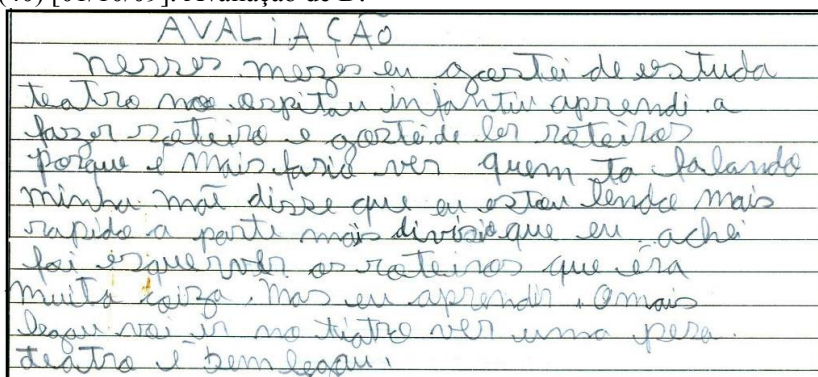 (40) [01/10/09]: Avaliação de D.
AVALIAÇÃO
nesses mezes eu gostei de estuda
teatro noo ospitau infantiu aprendi a
fazer roteiro e gostei de ler roteiros
porque é mais fasio ver quem ta falando
minha mãe disse que eu estou lendo mais
rapido a parti mais divisio que eu achei
foi esquerver os roteiros que éra
muita coiza. mas eu aprendi. O mais
legau voi ir no tiatro ver uma pesa.
teatro é bem legau.